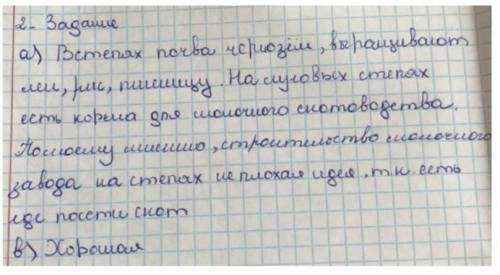 2. Задание
а) Встепах почва чернозём, выращивают
лен, рис, пшеницу. На луговых степах
есть корма для молочного скотоводства.
Помоему мнению, строительство молочного
завода на степах не плохая идея, т.к. есть
где пасти скот
в) Хорошая